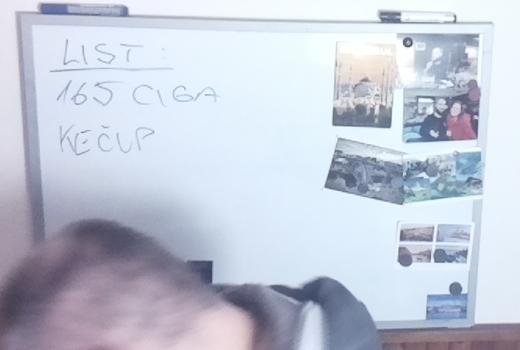 LIST:
165 CIGA
KEČUP